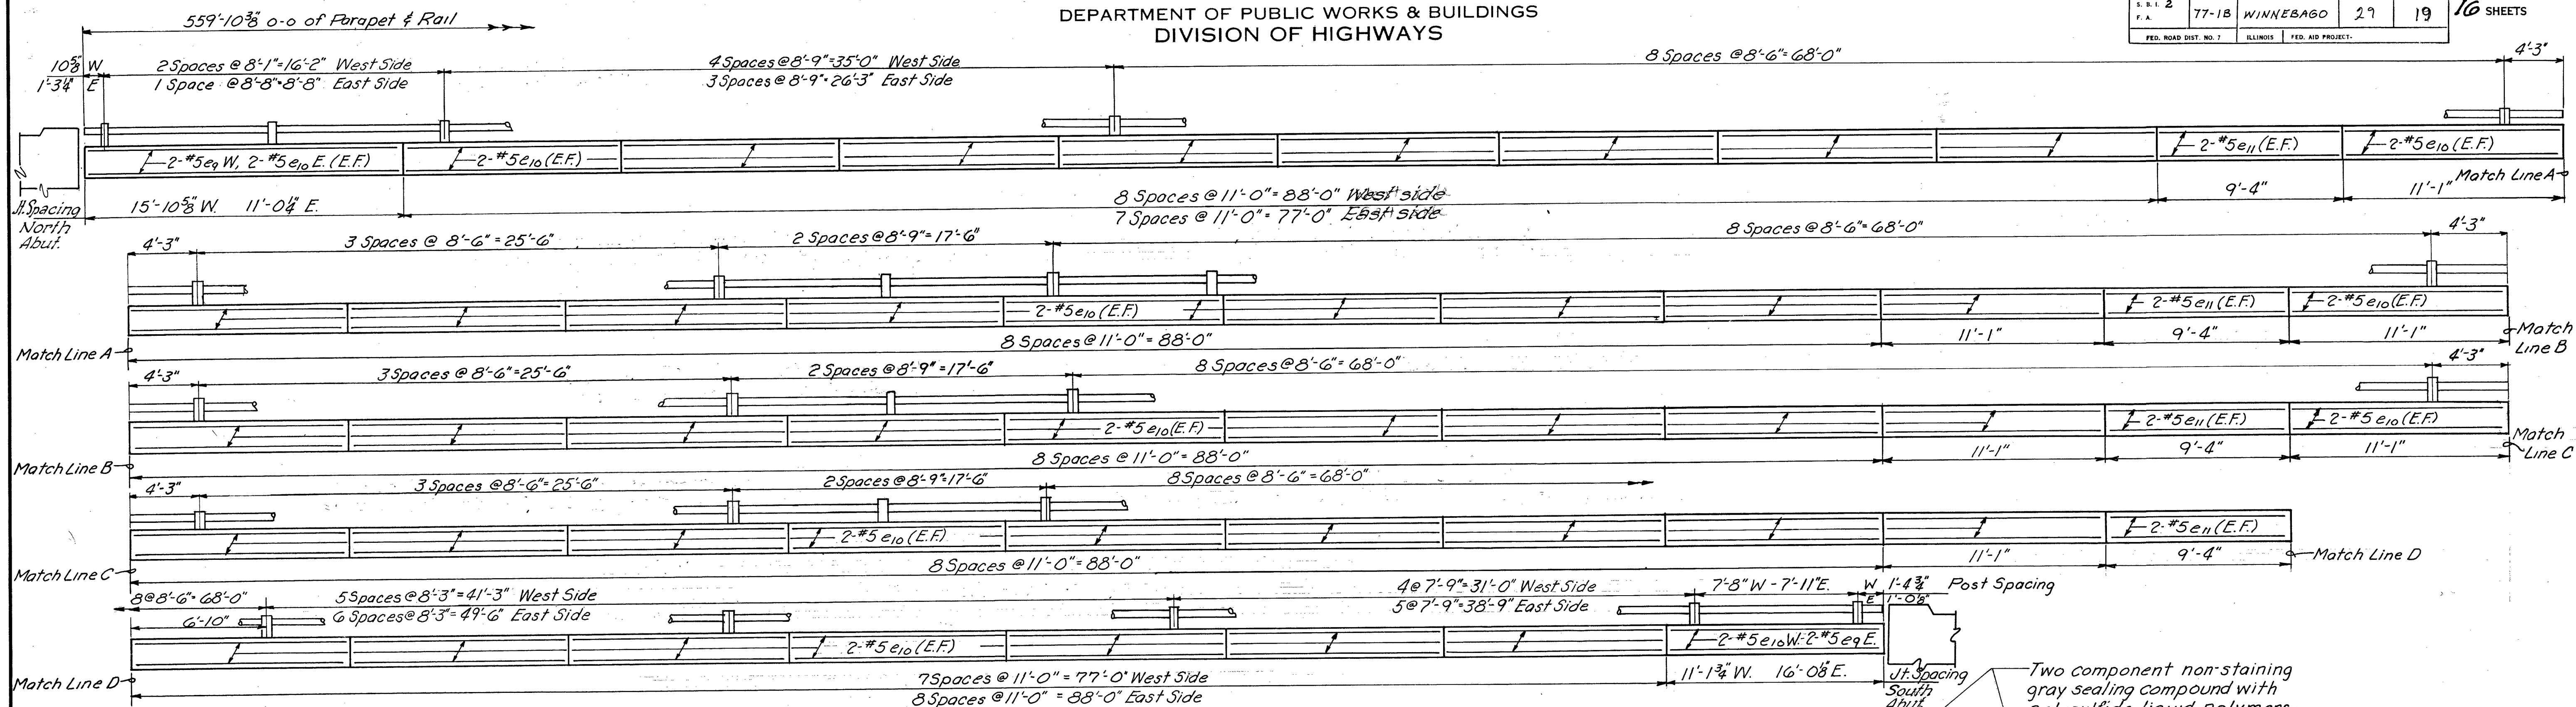 559'-10 3/8" o-o of Parapet & Rail
DEPARTMENT OF PUBLIC WORKS & BUILDINGS
DIVISION OF HIGHWAYS
S. B. I. 2
F. A.
77-1B
WINNEBAGO
29
19
16 SHEETS
FED. ROAD DIST. NO. 7
ILLINOIS
FED. AID PROJECT-
10 5/8" W
1'-3 1/4" E
2 Spaces @ 8'-1"=16'-2" West Side
1 Space @ 8'-8"=8'-8" East Side
4 Spaces @ 8'-9"=35'-0" West Side
3 Spaces @ 8'-9"=26'-3" East Side
8 Spaces @ 8'-6"=68'-0"
4'-3"
2-#5e9 W, 2-#5e10 E. (E.F.)
2-#5e10 (E.F.)
2-#5e11 (E.F.)
2-#5e10 (E.F.)
Jt. Spacing
North
Abut.
15'-10 5/8" W. 11'-0 1/4" E.
8 Spaces @ 11'-0"=88'-0" West side
7 Spaces @ 11'-0"=77'-0" East side
9'-4"
11'-1"
Match Line A
4'-3"
3 Spaces @ 8'-6"=25'-6"
2 Spaces @ 8'-9"=17'-6"
8 Spaces @ 8'-6"=68'-0"
4'-3"
2-#5e10 (E.F.)
2-#5e11 (E.F.)
2-#5e10 (E.F.)
Match Line A
8 Spaces @ 11'-0"=88'-0"
11'-1"
9'-4"
11'-1"
Match
Line B
4'-3"
3 Spaces @ 8'-6"=25'-6"
2 Spaces @ 8'-9"=17'-6"
8 Spaces @ 8'-6"=68'-0"
4'-3"
2-#5e10 (E.F.)
2-#5e11 (E.F.)
2-#5e10 (E.F.)
Match Line B
8 Spaces @ 11'-0"=88'-0"
11'-1"
9'-4"
11'-1"
Match
Line C
4'-3"
3 Spaces @ 8'-6"=25'-6"
2 Spaces @ 8'-9"=17'-6"
8 Spaces @ 8'-6"=68'-0"
2-#5e10 (E.F.)
2-#5e11 (E.F.)
Match Line C
8 Spaces @ 11'-0"=88'-0"
11'-1"
9'-4"
Match Line D
8 @ 8'-6"=68'-0"
6'-10"
5 Spaces @ 8'-3"=41'-3" West Side
6 Spaces @ 8'-3"=49'-6" East Side
4 @ 7'-9"=31'-0" West Side
5 @ 7'-9"=38'-9" East Side
7'-8" W - 7'-11" E.
W 1'-4 3/4"
E 1'-0 1/8"
Post Spacing
2-#5e10 (E.F.)
2-#5e10 W.-2-#5e9 E.
Match Line D
7 Spaces @ 11'-0"=77'-0" West Side
8 Spaces @ 11'-0"=88'-0" East Side
11'-1 3/4" W. 16'-0 1/8" E.
Jt. Spacing
South
Abut.
Two component non-staining
gray sealing compound with